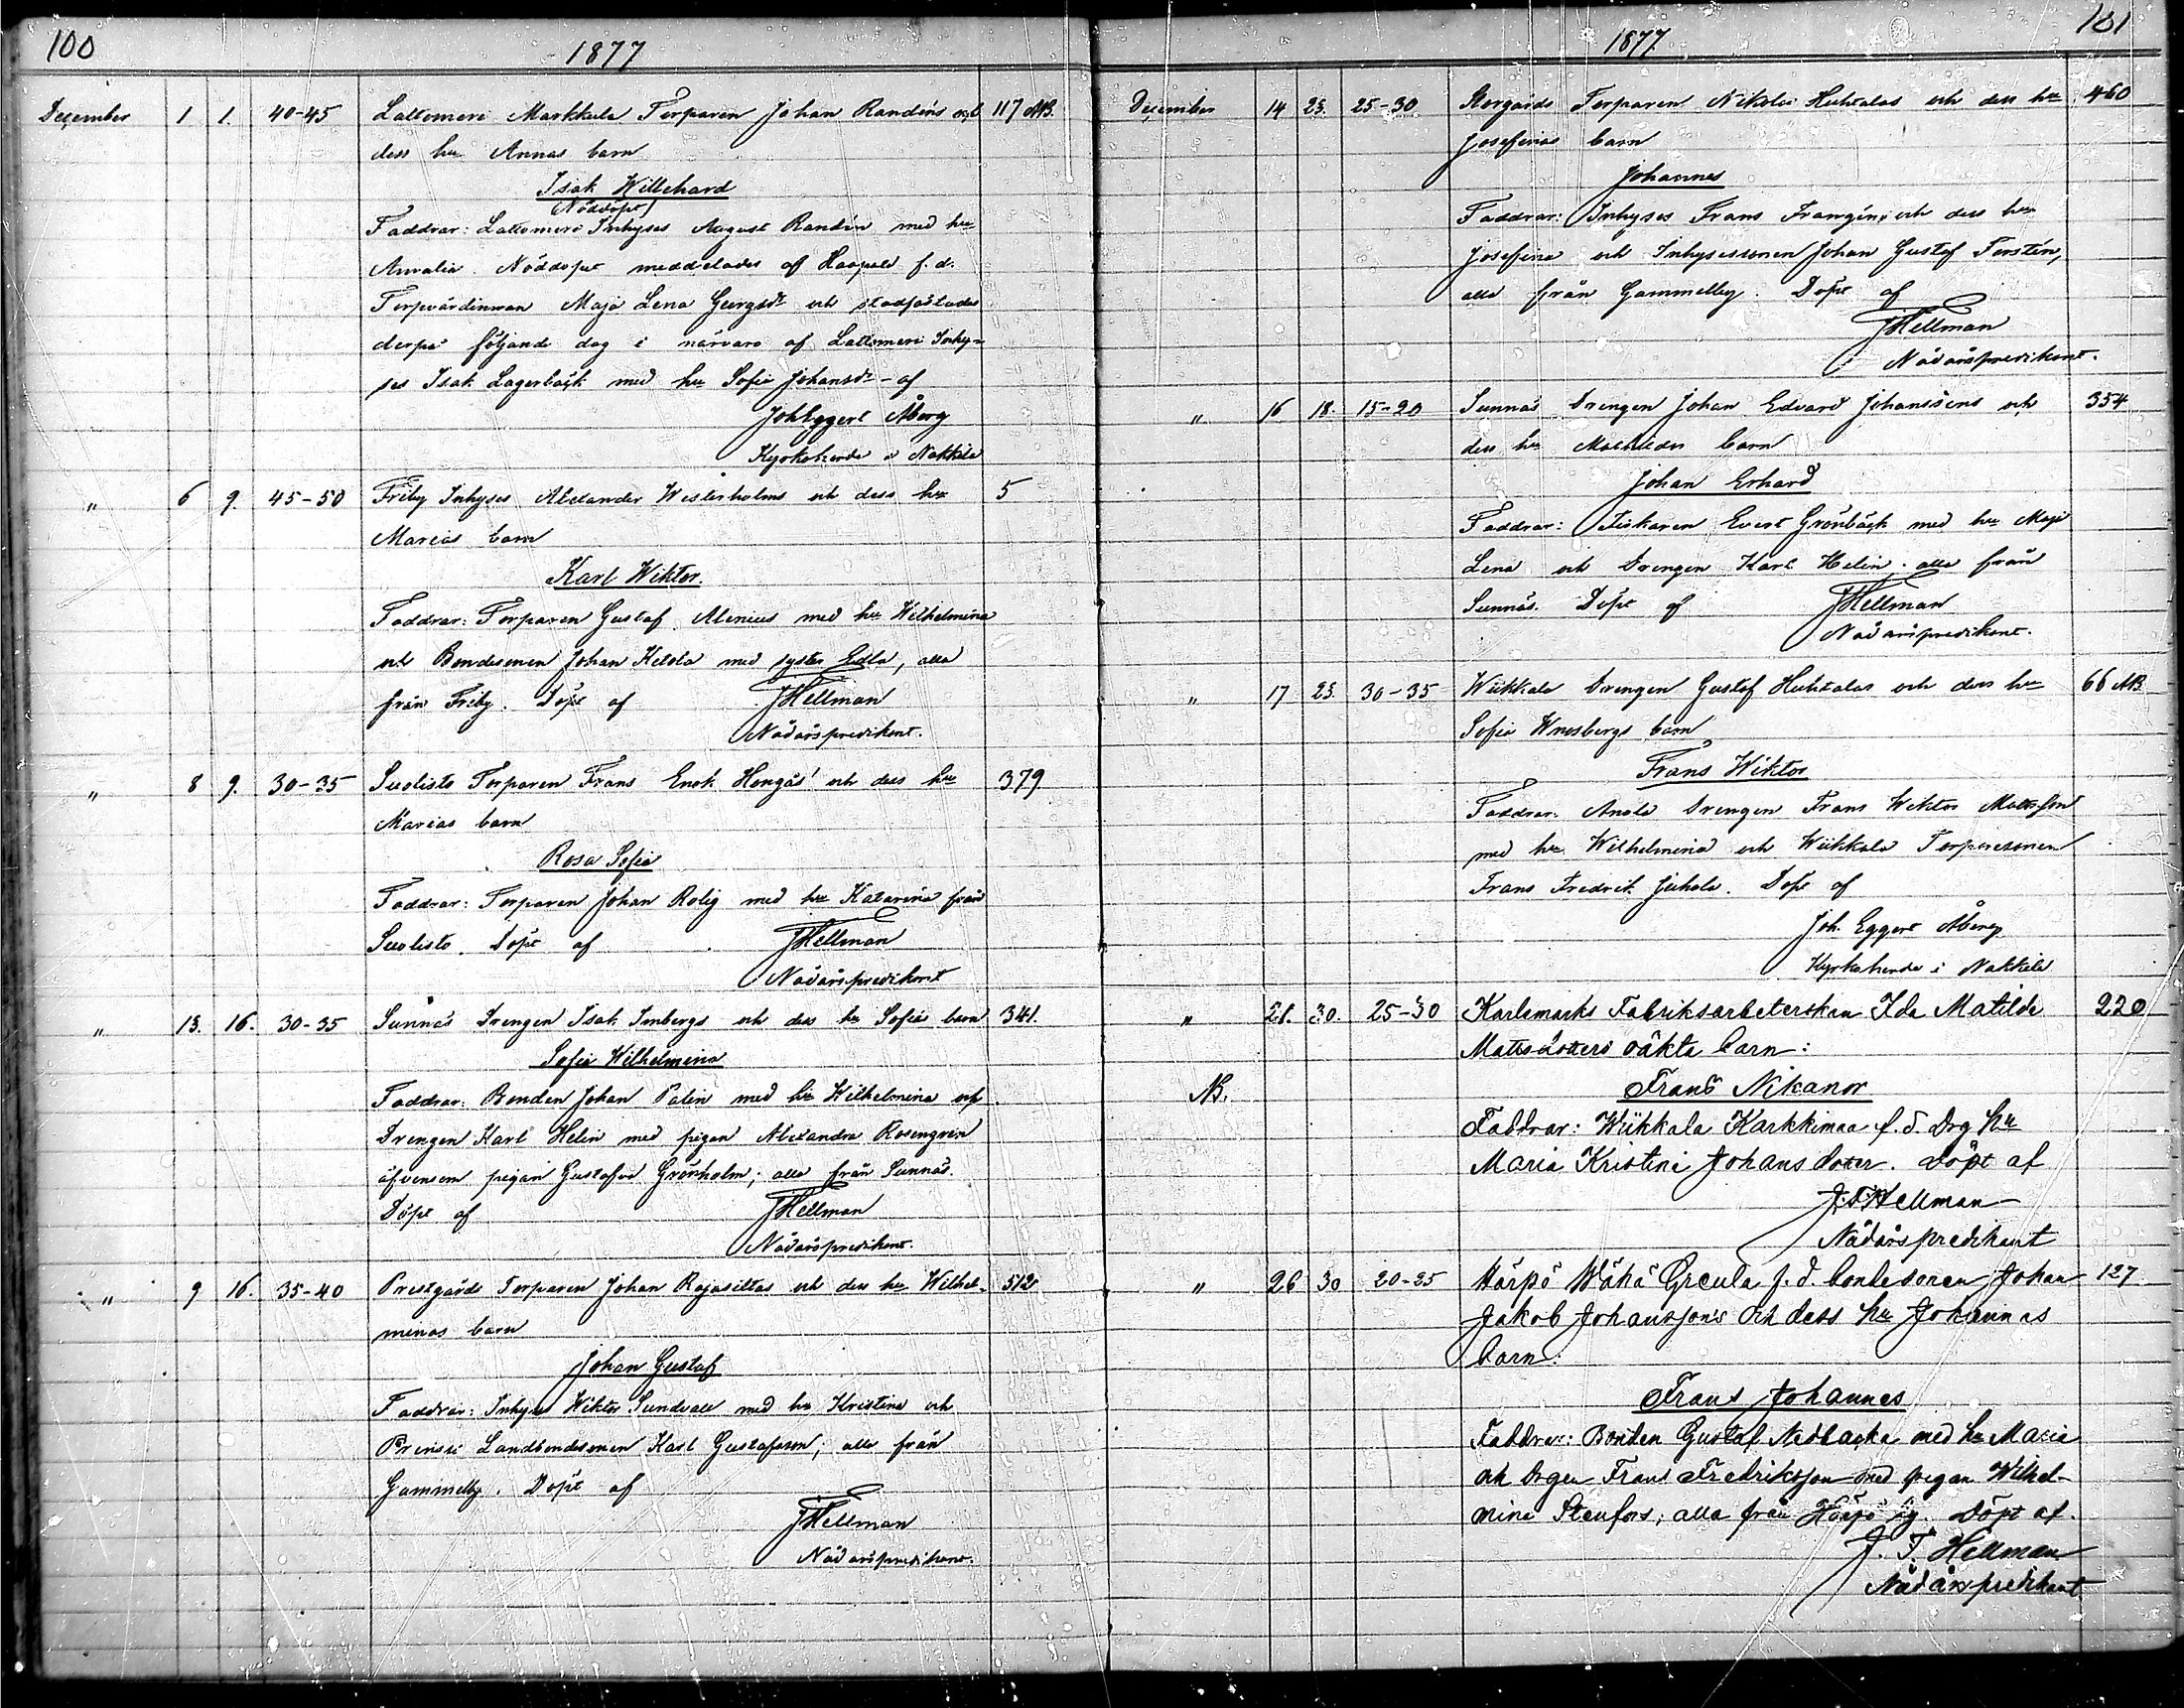 100
1877
December 1 1. 40-45 Lattomeri Markkula Torparen Johan Randéns och 117 NB.
dess hu Annas barn
Isak Willehard
(Nöddöpt)
Faddrar: Lattomeri Inhyses August Randén med hu
Amalia. Nöddopet meddelades af Haapala f.d.
Torpvärdinnan Maja Lena Georgsdr och stadfästades
derpå följande dag i närvaro af Lattomeri Inhy-
ses Isak Lagerbäck med hu Sofia Johansdr - af
Joh Eggert Åberg
Kyrkoherde i Nakkila
" 6 9. 45-50 Friby Inhyses Alexander Westerholms och dess hu 5
Marias barn
Karl Wiktor.
Faddrar: Torparen Gustaf Alenius med hu Wilhelmina
och Bondesonen Johan Ketola med syster Edla, alla
från Friby. Döpt af JTHellman
Nådårspredikant.
" 8 9. 30-35 Suolisto Torparen Frans Enok Hongas' och dess hu 379
Marias barn
Rosa Sofia
Faddrar: Torparen Johan Rolig med hu Katarina från
Suolisto. Döpt af JTHellman
Nådårspredikant
" 13. 16. 30-35 Sunnäs Drengen Isak Imbergs och dess hu Sofias barn 341.
Sofia Wilhelmina
Faddrar: Bonden Johan Palin med hu Wilhelmina och
Drengen Karl Helin med pigan Alexandra Rosengren
äfvensom pigan Gustafva Grönholm; alla från Sunnäs.
Döpt af JTHellman
Nådårspredikant.
" 9 16. 35-40 Prestgårds Torparen Johan Rajasiltas och dess hu Wilhel- 512
minas barn
Johan Gustaf
Faddrar: Inhyses Wiktor Sundvall med hu Kristina och
Landbondesonen Karl Gustafsson; alla från
Gammelby. Döpt af
JTHellman
Nådårspredikant.
101
1877.
December 14 23. 25-30 Storgårds Torparen Nikolai Huhtalas och dess hu 460
Josefinas barn
Johannes
Faddrar: Inhyses Frans Frangén och dess hu
Josefina och Inhysessonen Johan Gustaf Forstén,
alla från Gammelby. Döpt af
JTHellman
Nådårspredikant.
" 16. 18. 15-20 Sunnäs Drengen Johan Edvard Johanssons och 354
dess hu Mathildas barn
Johan Erhard
Faddrar: Fiskaren Evert Grönbäck med hu Maja
Lena och Drengen Karl Helin. alla från
Sunnäs. Döpt af JTHellman
Nådårspredikant.
" 17 23. 30-35 Wiikkala Drengen Gustaf Huhtalas och dess hu 66 NB.
Sofia barn
Frans Wiktor
Faddrar: Anola Drengen Frans Wiktor Matsson
med hu Wilhelmina och Wiikkala Torparesonen
Frans Fredrik Juhola. Döpt af
Joh. Eggert Åberg
Kyrkoherde i Nakkila
" 21. 30. 25-30 Karlsmarks Fabriksarbeterskan Ida Matilda 220
Mattsdotters oäkta barn:
NB. Frans Nikanor
Faddrar: Wiikkala Karkkimaa f.d. Drg hu
Maria Kristina Johansdotter. Döpt af
J.T.Hellman
Nådårspredikant
" 26 30 20-25 Härpö Wähä Greula f.d. bondesonen Johan 127
Jakob Johanssons och dess hu Johannas
barn:
Frans Johannes
Faddrar: Bonden Gustaf Nedbacka med hu Maria
och drgen Frans Fredriksson med pigan Wilhel-
mina Stenfors; alla från Härpö by. Döpt af.
J. T. Hellman
Nådårspredikant